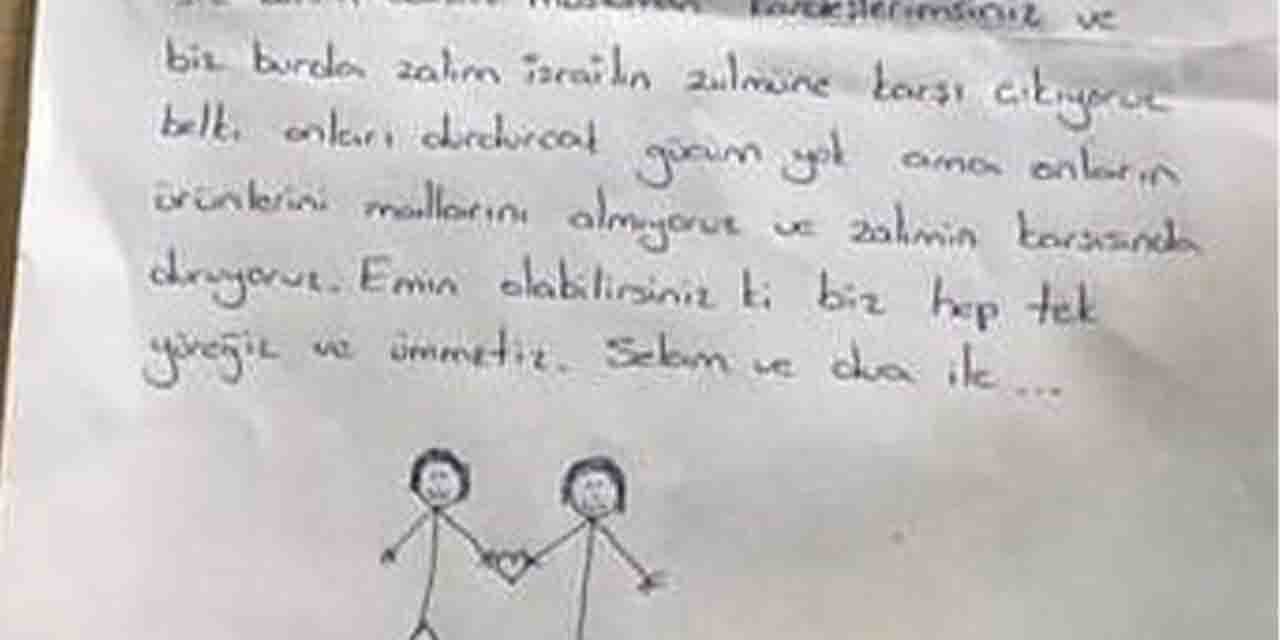 kardeşlerimsiniz ve
biz burda zalim israilin zulmüne karşı çıkıyoruz
belki onları durdurcak gücüm yok ama onların
ürünlerini mallarını almıyoruz ve zalimin karşısında
duruyoruz. Emin olabilirsiniz ki biz hep tek
yüreğiz ve ümmetiz. Selam ve dua ile ...